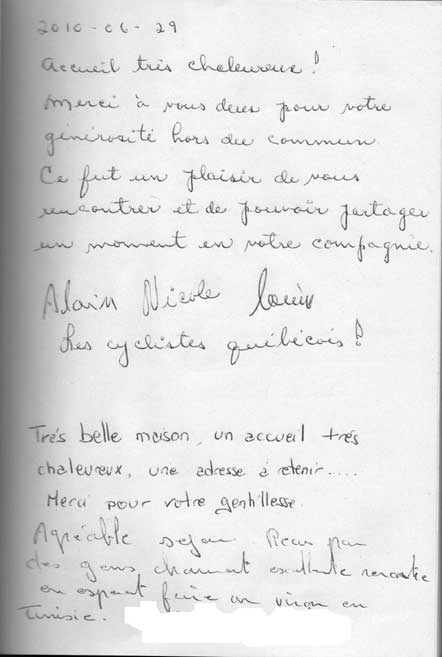 2010-06-29
Accueil très chaleureux!
Merci à vous deux pour votre
générosité hors du commun
Ce fut un plaisir de vous
rencontrer et de pouvoir partager
un moment en votre compagnie.
Alain Nicole Louis
Les cyclistes québécois!
Trés belle maison, un accueil trés
chaleureux, une adresse à retenir.....
Merci pour votre gentillesse.
Agréable sejour par
des gens charmant excellente rencontre
en espérant faire un viron en
Tunisie.